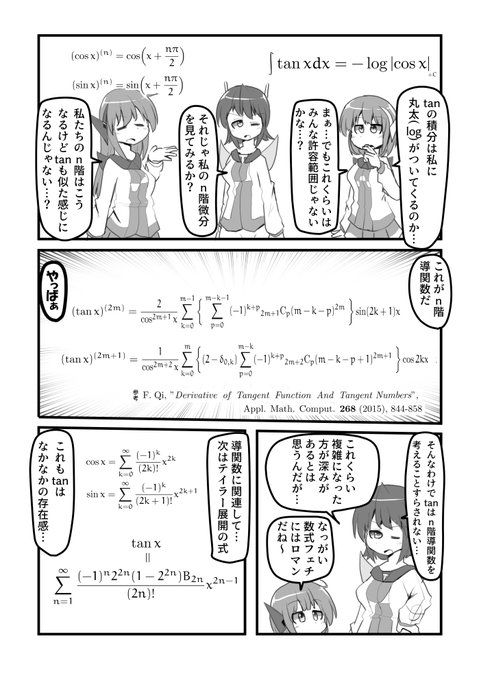 ∫tan xdx = − log |cos x| +C
(cos x)⁽ⁿ⁾ = cos(x + nπ/2)
(sin x)⁽ⁿ⁾ = sin(x + nπ/2)
tanの積分は私に
丸太(log)が
ついてくるのか…
まぁ…でもこれくらいは
みんな許容範囲じゃない
かな…?
それじゃ私のn階微分
を見てみるか?
私たちのn階はこう
なるけどtanも似た感じに
なるんじゃない…?
これがn階
導関数だ
(tan x)⁽²ᵐ⁾ = 2/cos²ᵐ⁺¹x ∑_{k=0}^{m−1} { ∑_{p=0}^{m−k−1} (−1)^{k+p} _{2m+1}C_p (m−k−p)^{2m} } sin(2k+1)x
(tan x)⁽²ᵐ⁺¹⁾ = 1/cos^{2m+2}x ∑_{k=0}^{m} { (2−δ_{0,k}) ∑_{p=0}^{m−k} (−1)^{k+p} _{2m+2}C_p (m−k−p+1)^{2m+1} } cos 2kx
やっばぁ
参考 F. Qi, "Derivative of Tangent Function And Tangent Numbers",
Appl. Math. Comput. 268 (2015), 844-858
そんなわけでtanはn階導関数を
考えることすらされない…
これくらい
複雑になった
方が深みが
あるとは
思うんだが…
なっがい
数式フェチ
にはロマン
だね〜
導関数に関連して…
次はテイラー展開の式
cos x = ∑_{k=0}^{∞} (−1)^k/(2k)! x^{2k}
sin x = ∑_{k=0}^{∞} (−1)^k/(2k+1)! x^{2k+1}
tan x
=
∑_{n=1}^{∞} (−1)^n 2^{2n}(1−2^{2n})B_{2n}/(2n)! x^{2n−1}
これもtanは
なかなかの存在感…